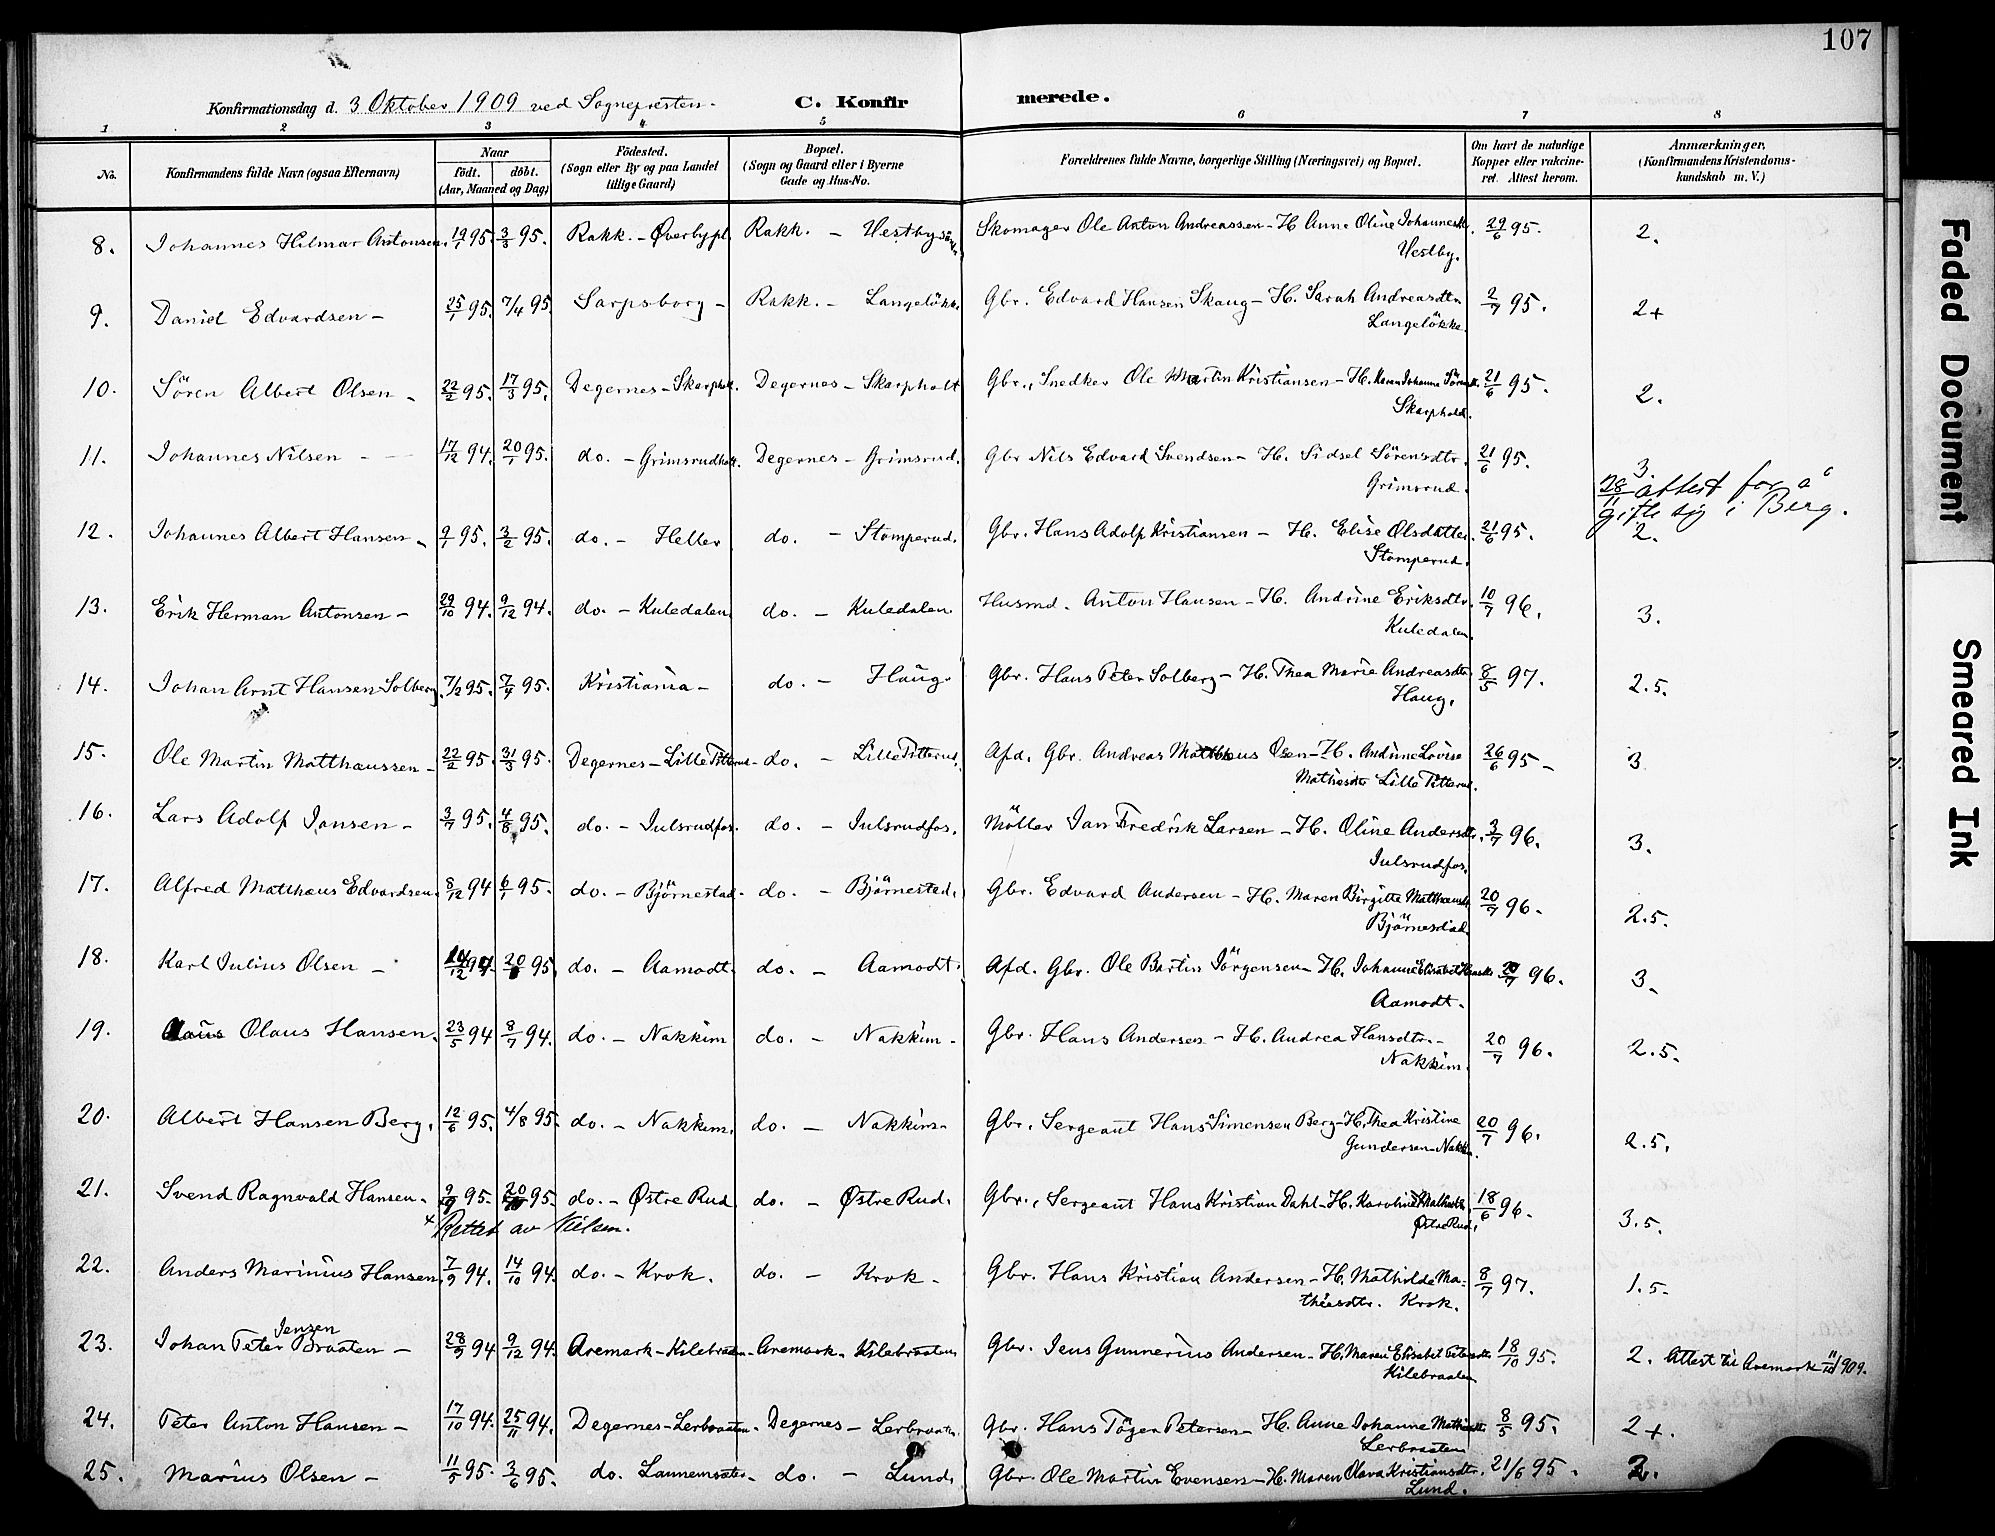 107
Konfirmationsdag d. 3 Oktober 1909 ved Sognepresten. C. Konfirmerede.
1 2 3 4 5 6 7 8
No. Konfirmandens fulde Navn (ogsaa Efternavn) Naar født. døbt. (Aar, Maaned og Dag) Fødested. (Sogn eller By og paa Landet tillige Gaard) Bopæl. (Sogn og Gaard eller i Byerne Gade og Hus-No. Forældrenes fulde Navne, borgerlige Stilling (Næringsvei) og Bopæl. Om havt de naturlige Kopper eller vaccineret. Attest herom. Anmærkninger. (Konfirmandens Kristendomskundskab m. V.)
8. Johannes Hilmar Antonsen. 19/1 95. 3/3 95. Rakk. - Øverbypl. Rakk. - Vestby Skomager Ole Anton Andreassen - H. Anne Oline 29/6 95. 2.
Vestby.
9. Daniel Edvardsen - 25/1 95. 7/4 95. Sarpsborg - Rakk. - Langeløkke. Gbr. Edvard Hansen Skaug - H. Sarah Andreasdtr. 2/7 95. 2+
Langeløkke.
10. Sören Albert Olsen - 22/2 95. 17/3 95. Degernes - Skarpholt. Degernes - Skarpholt Gbr., Snedker Ole Martin Kristiansen - H. Karen Johanne 21/6 95. 2.
Skarpholt.
11. Johannes Nilsen - 17/12 94. 20/1 95. do. - Grimsrudholt. Degernes - Grimsrud. Gbr. Nils Edvard Svendsen - H. Sidsel Sörensdtr. 21/6 95. 3.
Grimsrud.
28/11 attest for å
gifte sig i Berg.
12. Johannes Albert Hansen - 9/1 95. 3/2 95. do. - Heller do. - Stomperud. Gbr. Hans Adolf Kristiansen - H. Elise Olsdatter. 21/6 95. 2.
Stomperud.
13. Erik Herman Antonsen - 29/10 94. 9/12 94. do. - Kuledalen do. - Kuledalen. Husmd. Anton Hansen - H. Andrine Eriksdtr. 10/7 96. 3.
Kuledalen.
14. Johan Arnt Hansen Solberg. 7/2 95. 7/4 95. Kristiania - do. - Haug. Gbr. Hans Peter Solberg - H. Thea Marie Andreasdtr. 8/5 97. 2.5.
Haug.
15. Ole Martin Matthæussen - 22/2 95. 31/3 95. Degernes - Lille Titterud - do. - Lille Titterud. Afd. Gbr. Andreas Matthæus Olsen - H. Andrine Lovise 26/6 95 - 3
Lille Titterud.
16. Lars Adolf Jansen - 3/7 95. 4/8 95. do. - Julsrudfos. do. - Julsrudfos. Möller Jan Fredrik Larsen - H. Oline Andersdtr. 3/7 96. 3.
Julsrudfos.
17. Alfred Matthæus Edvardsen. 8/12 94 6/1 95. do. - Björnestad. do. - Björnestad. Gbr. Edvard Andersen - H. Maren Birgitte 20/7 96 - 2.5.
Björnestad.
18. Karl Julius Olsen - 14/12 94. 95. do. - Aamodt. do. - Aamodt. Afd. Gbr. Ole Bertin Jörgensen - H. Johanne Elisabet 96. 3.
Aamodt.
19. Olaus Hansen. 23/5 94 8/7 94. do. - Nakkim do. - Nakkim - Gbr. Hans Andersen - H. Andrea Hansdtr. - 20/7 96. 2.5.
Nakkim.
20. Albert Hansen Berg. 12/6 95. 4/8 95. do. - Nakkim. do. - Nakkim - Gbr., Sergeant Hans Simensen Berg - H. Thea Kristine 20/7 96. 2.5.
Gundersen - Nakk.
21. Svend Ragnvald Hansen. 95. 95. do. - Østre Rud do. - Østre Rud. Gbr., Sergeant Hans Kristian Dahl - H. Karoline 18/6 96. 3.5.
+ Rettet av Nilsen. Østre Rud.
22. Anders Marinius Hansen. 7/9 94. 14/10 94. do. - Krok. do. - Krok - Gbr. Hans Kristian Andersen - H. Mathilde Ma- 8/7 97. 1.5.
theasdtr. Krok.
Jensen
23. Johan Peter Braaten - 28/9 94 9/12 94. Aremark - Kilebraaten - Aremark - Kilebraaten Gbr. Jens Gunnerius Andersen - H. Maren Elisabet 18/10 95. 2. Attest til Aremark 11/10 1909.
Kilebraaten
24. Peter Anton Hansen - 17/10 94. 25/11 94. Degernes - Lerbraaten - Degernes - Lerbraaten. Gbr. Hans Töger Petersen - H. Anne Johanne 8/5 95. 2+.
Lerbraaten
25. Marius Olsen - 11/5 95. 3/6 95. do. do. - Lund. Gbr. Ole Martin Evensen - H. Maren Olava Kristiansdtr. 21/6 95. 2.
Lund.
Faded Document
Smeared Ink